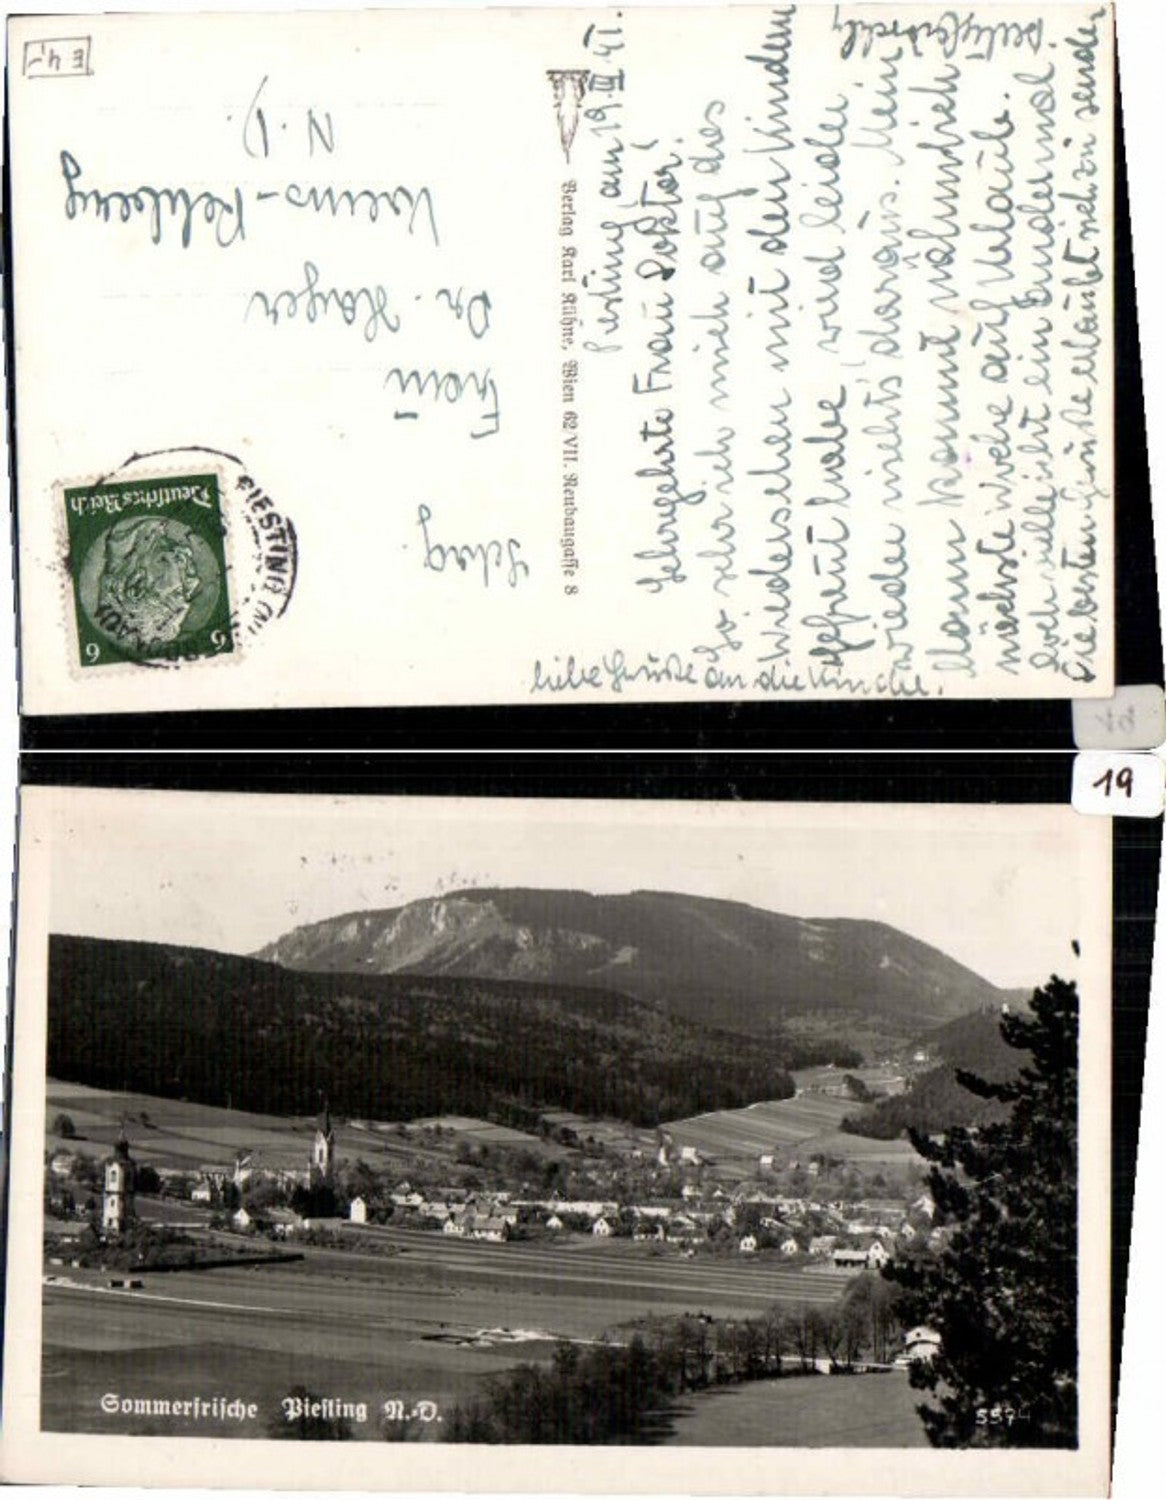 E 4,-
Piesting, am 19. III. 41.
Sehrgehrte Frau Doktor!
So sehr ich mich auf das
Wiedersehen mit den Kindern
gefreut habe, wird leider
wieder nichts daraus. Mein
Mann kommt nähmlich
nächste Woche auf Urlaub.
Doch vielleicht ein andermal.
Die besten Grüße erlaubt sich zu senden
liebe Grüße an die Kinder.
Verlag Karl Kühne, Wien 62/VII. Neubaugasse 8
Deutsches Reich
6 6
PIESTING
Frau
Dr. Hayer
Krems-
N. D.
19
Sommerfrische Piesting N.-D.
5574